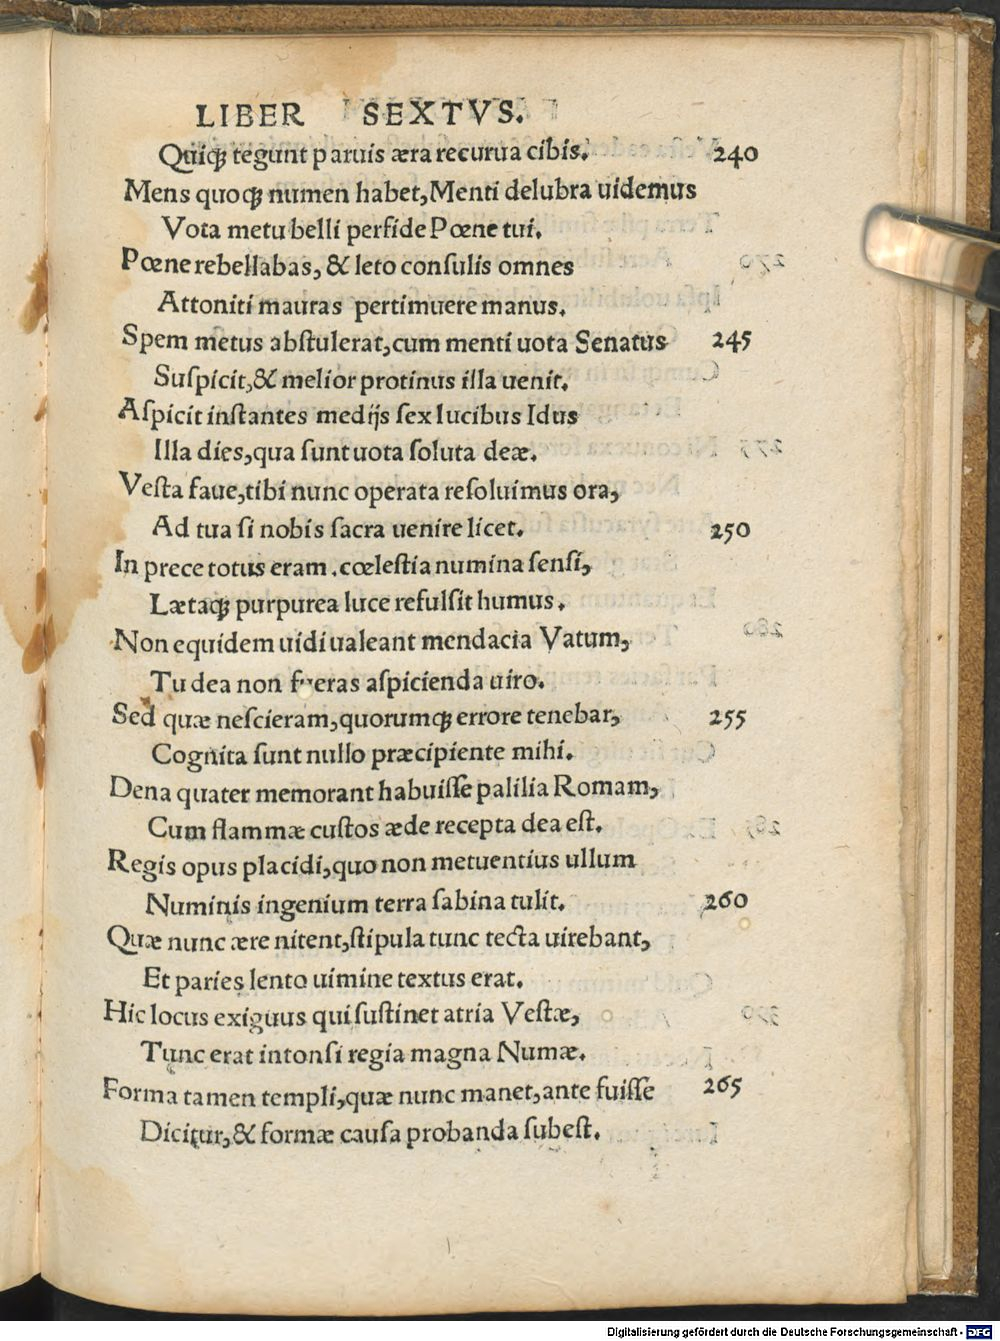 LIBER SEXTVS.
Quiqꝫ tegunt paruis æra recurua cibis. 240
Mens quoqꝫ numen habet, Menti delubra uidemus
Vota metu belli perfide Pœne tui.
Pœne rebellabas, & leto conſulis omnes
Attoniti mauras pertimuere manus.
Spem metus abſtulerat, cum menti uota Senatus 245
Suſpicit, & melior protinus illa uenit.
Aſpicit inſtantes medijs ſex lucibus Idus
Illa dies, qua ſunt uota ſoluta deæ.
Veſta faue, tibi nunc operata reſoluimus ora,
Ad tua ſi nobis ſacra uenire licet. 250
In prece totus eram. cœleſtia numina ſenſi,
Lætaqꝫ purpurea luce refulſit humus.
Non equidem uidi ualeant mendacia Vatum,
Tu dea non fueras aſpicienda uiro.
Sed quæ neſcieram, quorumqꝫ errore tenebar, 255
Cognita ſunt nullo præcipiente mihi.
Dena quater memorant habuiſſe palilia Romam,
Cum flammæ cuſtos æde recepta dea eſt.
Regis opus placidi, quo non metuentius ullum
Numinis ingenium terra ſabina tulit. 260
Quæ nunc ære nitent, ſtipula tunc tecta uirebant,
Et paries lento uimine textus erat.
Hic locus exiguus qui ſuſtinet atria Veſtæ,
Tunc erat intonſi regia magna Numæ.
Forma tamen templi, quæ nunc manet, ante fuiſſe 265
Dicitur, & formæ cauſa probanda ſubeſt.
Digitalisierung gefördert durch die Deutsche Forschungsgemeinschaft - DFG